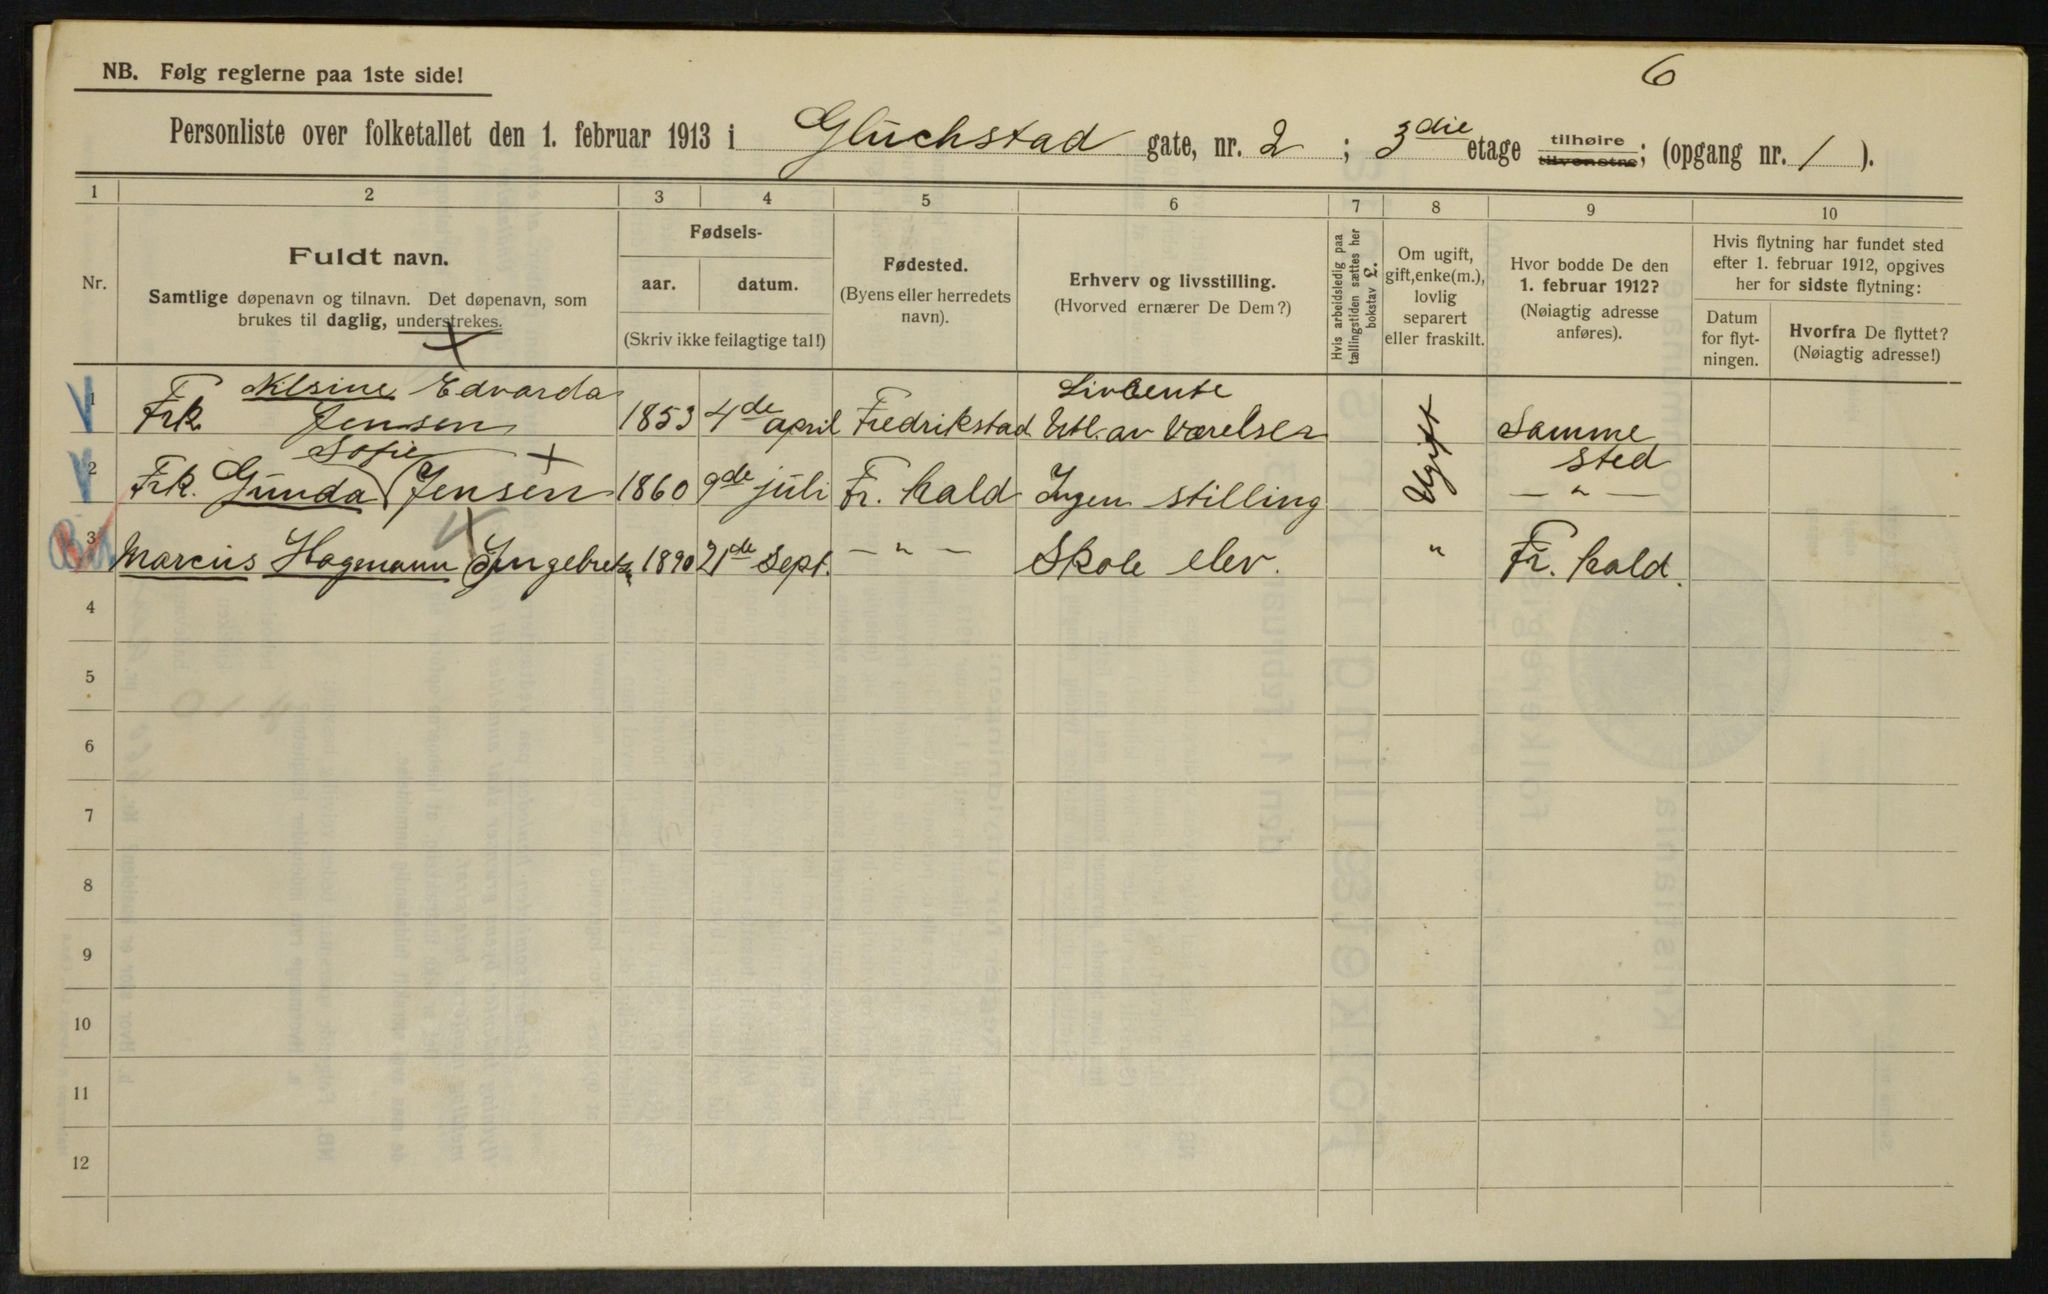 6
NB. Følg reglerne paa 1ste side!
Personliste over folketallet den 1. februar 1913 i Gluchstad gate, nr. 2 ; 3die etage tilhøire tilvenstre; (opgang nr. 1 ).
1 2 3 4 5 6 7 8 9 10
Nr.
Fuldt navn.
Samtlige døpenavn og tilnavn. Det døpenavn, som
brukes til daglig, understrekes.
Fødsels-
aar. datum.
(Skriv ikke feilagtige tal!)
Fødested.
(Byens eller herredets
navn).
Erhverv og livsstilling.
(Hvorved ernærer De Dem?)
Hvis arbeidsledig paa
tællingstiden sættes her
bokstav L.
Om ugift,
gift, enke(m.),
lovlig
separert
eller fraskilt.
Hvor bodde De den
1. februar 1912?
(Nøiagtig adresse
anføres).
Hvis flytning har fundet sted
efter 1. februar 1912, opgives
her for sidste flytning:
Datum
for flyt-
ningen.
Hvorfra De flyttet?
(Nøiagtig adresse!)
1 Frk. Nilsine Edvarda
Jensen 1853 4de april Fredrikstad Livrente
Utl. av Værelser Ugift Samme
sted
2 Frk. Gunda Sofie Jensen 1860 9de juli Fr. hald Ingen stilling — " —
3 Marcus Hagemann Ingebrets. 1890 21de sept. — " — Skole elev. " Fr. hald.
4
5
6
7
8
9
10
11
12